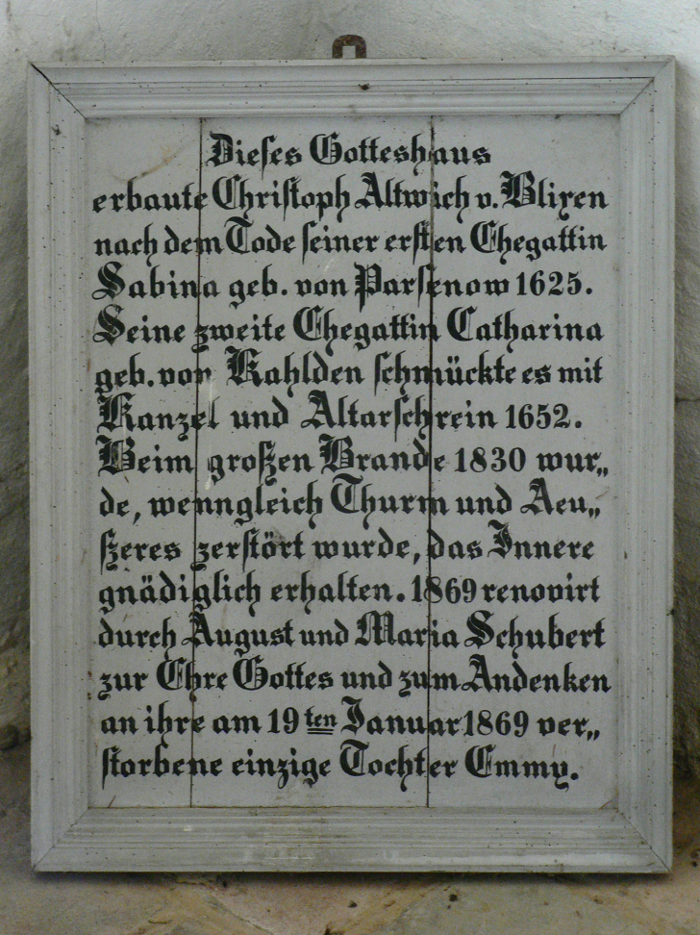 Dieses Gotteshaus
erbaute Christoph Altwich v. Blixen
nach dem Tode seiner ersten Ehegattin
Sabina geb. von Parsenow 1625.
Seine zweite Ehegattin Catharina
geb. von Kahlden schmückte es mit
Kanzel und Altarschrein 1652.
Beim großen Brande 1830 wur„
de, wenngleich Thurm und Aeu„
ßeres zerstört wurde, das Innere
gnädiglich erhalten. 1869 renovirt
durch August und Maria Schubert
zur Ehre Gottes und zum Andenken
an ihre am 19ten Januar 1869 ver„
storbene einzige Tochter Emmy.